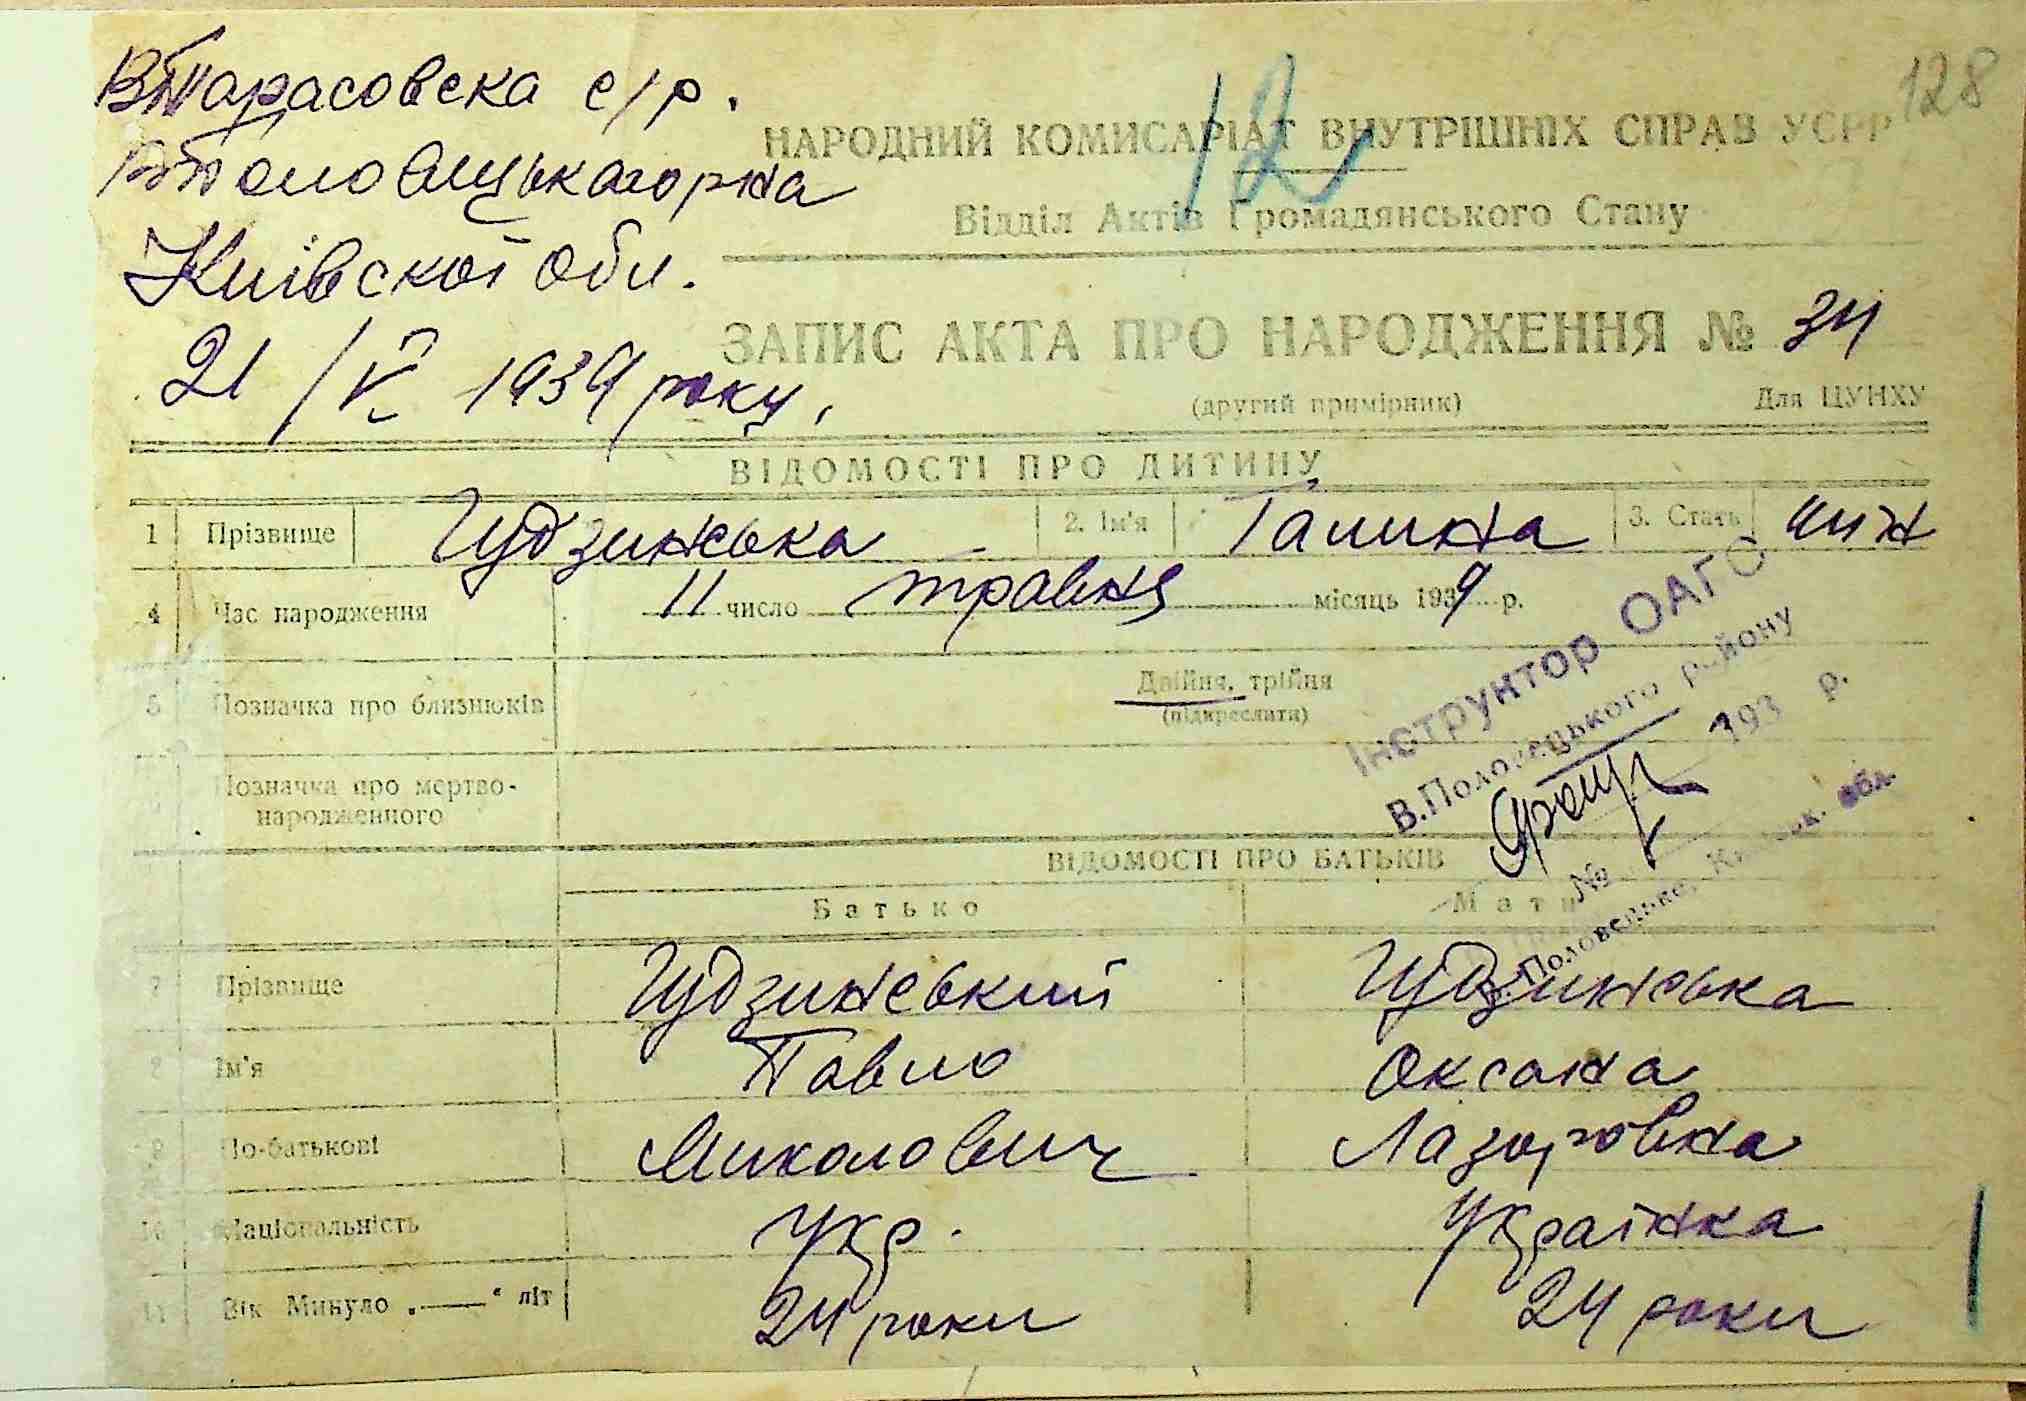 ВТарасовска с/р.
Київскої обл.
21/V 1939 року,
12
128
НАРОДНИЙ КОМИСАРІАТ ВНУТРІШНІХ СПРАВ УСРР
Відділ Актів Громадянського Стану
ЗАПИС АКТА ПРО НАРОДЖЕННЯ № 34
(другий примірник) Для ЦУНХУ
ВІДОМОСТІ ПРО ДИТИНУ
1 Прізвище Цудзинська 2. Ім'я Галина 3. Стать жін
4 Час народження 11 число травня місяць 1939 р.
5 Позначка про близнюків Двійня, трійня
(підкреслити)
Позначка про мертво-
народженного
Інструктор ОАГС
В.Половецького району
193 р.
№
Половецьке, Київськ. обл.
ВІДОМОСТІ ПРО БАТЬКІВ
Батько Мати
7 Прізвище Цудзинський Цудзинська
8 Ім'я Павло Оксана
9 По-батькові Миколович Лазоровна
10 Національність Укр. Українка
11 Вік Минуло „—“ літ 24 роки 24 роки